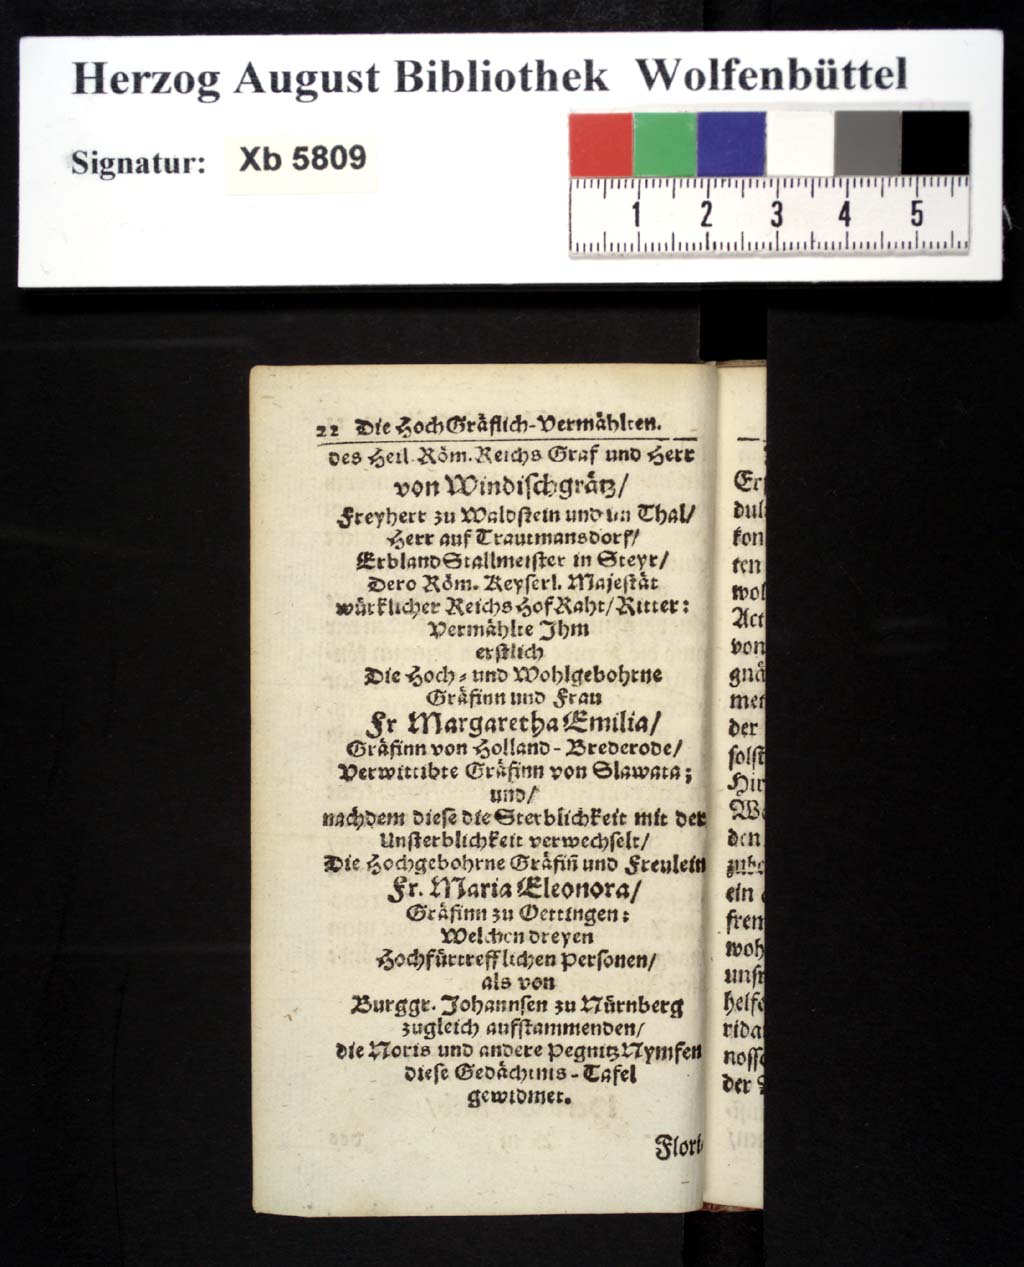 Herzog August Bibliothek Wolfenbüttel
Signatur: Xb 5809
1 2 3 4 5
22 Die HochGräflich-Vermählten.
des Heil. Röm. Reichs Graf und Herr
von Windischgrätz/
Freyherr zu Waldstein und im Thal/
Herr auf Trautmansdorf/
ErblandStallmeister in Steyr/
Dero Röm. Keyserl. Majestät
würklicher ReichsHofRaht/Ritter:
Vermählte Ihm
erstlich
Die Hoch- und Wohlgebohrne
Gräfinn und Frau
Fr Margaretha Emilia/
Gräfinn von Holland-Brederode/
Verwittibte Gräfinn von Slawata;
und/
nachdem diese die Sterblichkeit mit der
Unsterblichkeit verwechselt/
Die Hochgebohrne Gräfiñ und Freulein
Fr. Maria Eleonora/
Gräfinn zu Oettingen:
Welchen dreyen
Hochfürtrefflichen Personen/
als von
Burggr. Johannsen zu Nürnberg
zugleich aufstammenden/
die Noris und andere PegnitzNymfen
diese Gedächtnis-Tafel
gewidmet.
Flori
dul
kon
ten
wol
Act
von
gnä
der
solst
Hir
den
ein
fren
woh
unsr
helfe
rida
nosse
der